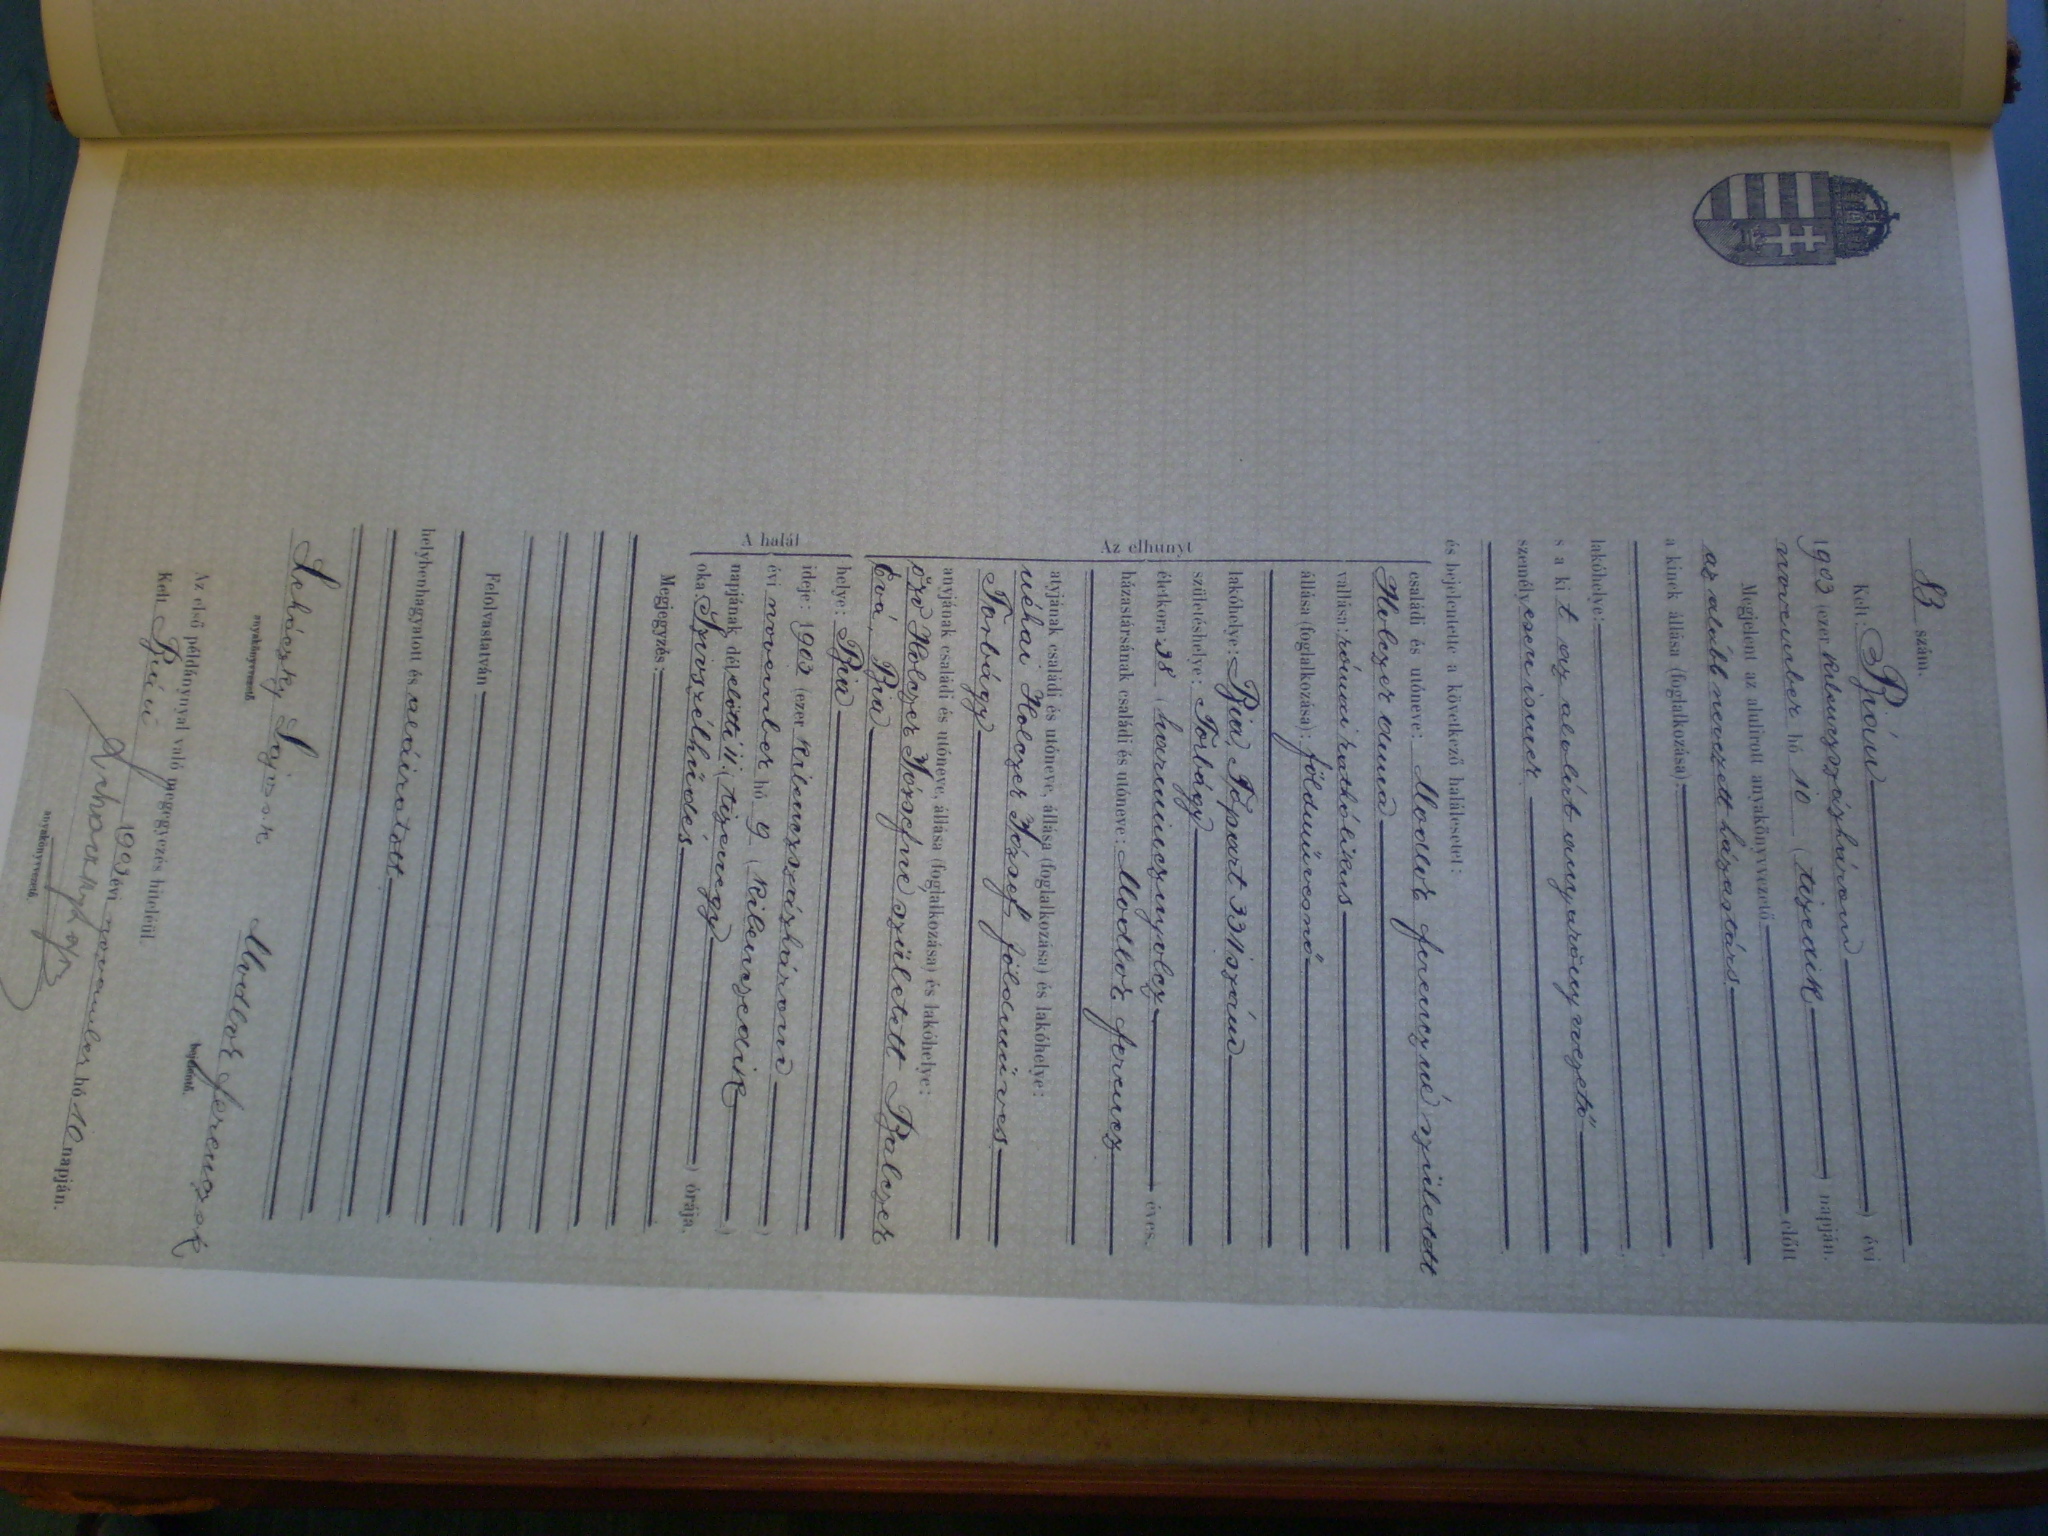 83 szám.
Kelt: Bián
1903 (ezer kilenczszázhárom) évi
november hó 10 (tizedik) napján.
Megjelent az alulirott anyakönyvvezető előtt
az alább nevezett házastárs
a kinek állása (foglalkozása):
lakóhelye:
s a kit az alulirt anyakönyvvezető
személyesen ismer
és bejelentette a következő halálesetet:
Az elhunyt
családi és utóneve: Modlok Ferenczné született
Holczer Anna
vallása: római katholikus
állása (foglalkozása): földmüvesnő
lakóhelye: Bia, Főpart 331 szám
születéshelye: Torbágy
életkora: 38 (harmincznyolcz) éves.
házastársának családi és utóneve: Modlok Ferencz
atyjának családi és utóneve, állása (foglalkozása) és lakóhelye:
néhai Holczer József földmüves
Torbágy
anyjának családi és utóneve, állása (foglalkozása) és lakóhelye:
özv Holczer Józsefné született Balczer
Éva, Bia
A halál
helye: Bia
ideje: 1903 (ezer kilenczszázhárom)
évi november hó 9 (kilenczedik)
napjának délelőtti 11 (tizenegy) órája.
oka: Szívszélhűdés
Megjegyzés:
Felolvastatván
helybenhagyatott és aláiratott.
Lajos Modlok Ferencz
anyakönyvvezető bejelentő.
Az első példánynyal való megegyezés hiteléül.
Kelt Bián 1903 évi november hó 10 napján.
anyakönyvvezető.